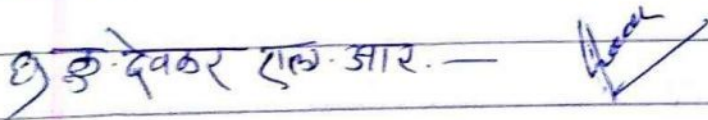 ७) कु. देवकर एल. आर. —